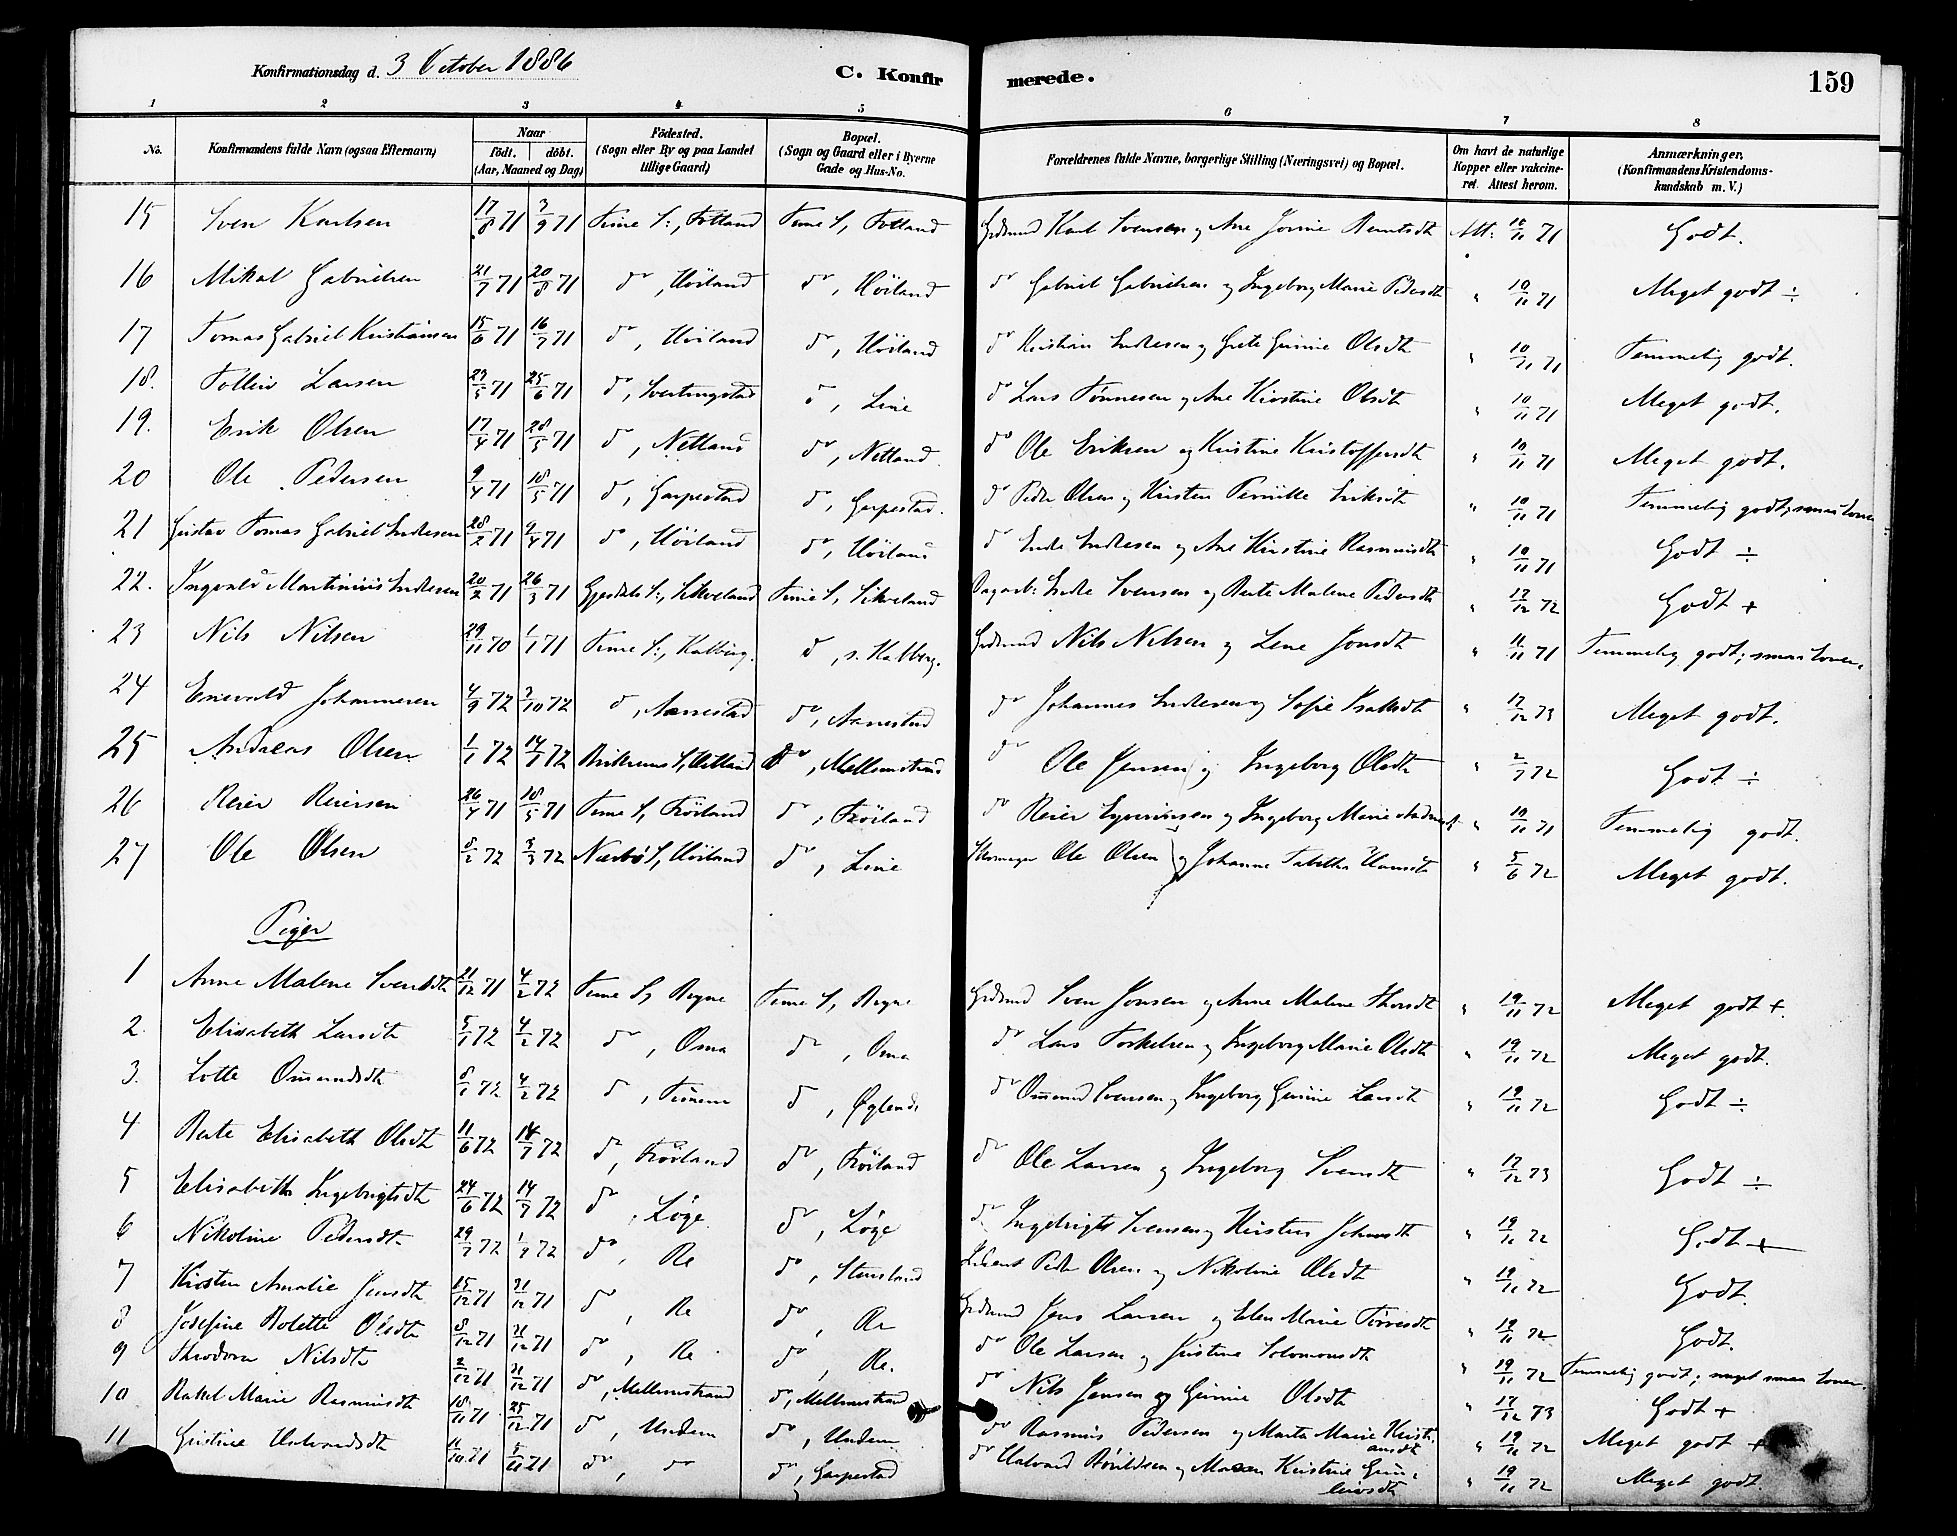 Konfirmationsdag d. 3 October 1886 C. Konfirmerede. 159
1 2 3 4 5 6 7 8
No. Konfirmandens fulde Navn (ogsaa Efternavn) Naar Födt. döbt. (Aar, Maaned og Dag) Födested. (Sogn eller By og paa Landet tillige Gaard) Bopæl. (Sogn og Gaard eller i Byerne Gade og Hus-No. Forældrenes fulde Navne, borgerlige Stilling (Næringsvei) og Bopæl. Om havt de naturlige Kopper eller vakcineret. Attest herom. Anmærkninger. (Konfirmandens Kristendomskundskab m. V.)
15 Sven Karlsen 17/8 71 3/9 71 Time S:, Fotland Time S, Fotland Grdmd Karl Svensen og Ane Jorine Berntsdt Att: 10/11 71 Godt.
16 Mikal Gabrielsen 21/7 71 20/8 71 do, Höiland do, Höiland do Gabriel Gabrielsen og Ingeborg Marie Pedersdt " 10/11 71 Meget godt ÷
17 Tomas Gabriel Kristiansen 15/6 71 16/7 71 do, Höiland do, Höiland do Kristian Endresen og Grete Gurine Olsdt " 10/11 71 Temmelig godt.
18. Tollew Larsen 23/5 71 25/6 71 do, Svertingstad do, Line do Lars Tönnesen og Ane Kirstine Olsdt " 10/11 71 Meget godt.
19. Erik Olsen 17/4 71 28/5 71 do, Netland do, Netland. do Ole Eriksen og Kristine Kristoffersdt " 10/11 71 Meget godt.
20 Ole Pedersen 9/4 71 18/5 71 do, Garpestad do, Garpestad. do Peder Olsen og Kirsten Pernille Eriksdt " 10/11 71 Temmelig godt;
21 Gustav Tomas Gabriel Endresen 28/2 71 9/4 71 do, Höiland do, Höiland do Endre Endresen og Ane Kirstine Rasmusdt " 10/11 71 Godt ÷
22. Ingvald Martinius Endresen 20/2 71 26/3 71 Gjesdals S:, Sikveland Time S, Sikveland Dagarb: Endre Svensen og Berte Malene Pedersdt " 17/12 72 Godt +
23 Nils Nilsen 29/11 70 1/1 71 Time S:, Kalberg. do, s. Kalberg. Grdmd Nils Nilsen og Lene Jonsdt " 11/11 71 Temmelig godt;
24 Enevald Johannesen 4/9 72 3/10 72 do, Aarrestad do, Aarrestad do Johannes Endresen og Sofie Isaksdt " 17/12 73 Meget godt.
25 Andreas Olsen 1/1 72 14/1 72 Birkrems S, do, Mellemstrand do Ole Jensen og Ingeborg Olsdt " 2/7 72 Godt ÷
26 Reier Reiersen 26/4 71 18/5 71 Time S, Fröiland do, Fröiland do Reier og Ingeborg Marie " 10/11 71 Temmelig godt.
27 Ole Olsen 8/2 72 3/3 72 Nærbö S, Höiland do, Line Ole Olsen og Johanne Tabitha Hansdt " 5/6 72 Meget godt.
Piger
1 Anne Malene Svensdt 21/12 71 4/2 72 Time S, Bryne Time S, Bryne Grdmd Sven Jonsen og Anne Malene Thorsdt " 19/11 72 Meget godt +.
2. Elisabeth Larsdt 5/1 72 4/2 72 do, Oma do, Oma do Lars Torkelsen og Ingeborg Marie Olsdt " 19/11 72 Meget godt.
3. Lotte Ommundsdt 8/1 72 4/2 72 do, do, Øglend. do Ommund Svensen og Ingeborg Gurine Larsdt " 19/11 72 Godt ÷
4 Berte Elisabeth Olsdt 11/6 72 14/7 72 do, Fröiland do, Fröiland do Ole Larsen og Ingeborg Svensdt " 17/12 73 Godt ÷
5 Elisabeth Ingebrigtsdt 24/6 72 14/7 72 do, Löge. do, Löge do Ingebrigt Svensen og Kirsten " 19/11 72 Godt +
6 Nikoline Pedersdt. 29/7 72 1/9 72 do, Re do, Stensland Peder Olsen og Nikoline Olsdt " 19/11 72 Godt.
7 Kirsten Amalie Jensdt 15/12 71 31/12 71 do, Re do, Re Grdmd Jens Larsen og Elen Marie Törresdt " 19/11 72 Godt.
8 Josefine Bolette Olsdt 8/12 71 31/12 71 do, Re do, Re. do Ole Larsen og Justine Salomonsdt " 19/11 72 Temmelig godt;
9 Theodora Nilsdt 2/12 71 31/12 71 do, Mellemstrand do, Mellemstrand do Nils Jensen og Gurine Olsdt " 17/12 73 Godt +
10 Rakel Marie Rasmusdt 18/11 71 25/12 71 do, Undem do, Undem do Rasmus Pedersen og Marte Marie Kristiansdt " 19/11 72 Meget godt +
11 Gustine Halvardsdt 11/10 71 5/11 71 do, do do, Garpestad do Halvard og Kirstine Gunleivsdt " 19/11 72 Meget godt.